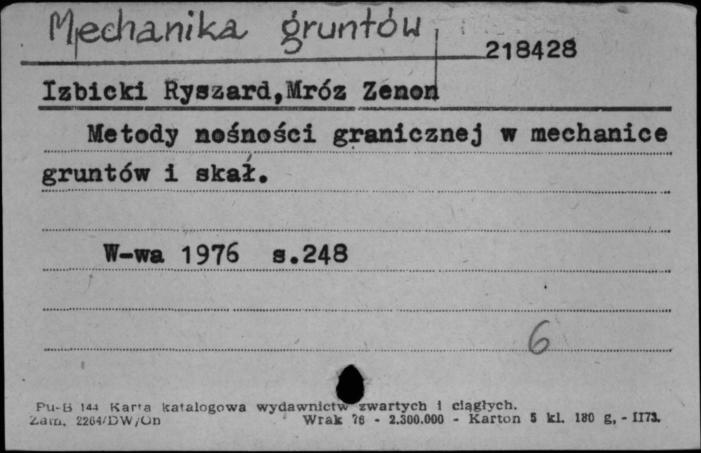 Mechanika gruntów
218428
Izbicki Ryszard,Mróz Zenon
Metody nośności granicznej w mechanice
gruntów i skał.
W-wa 1976 s.248
6
Pu-B 144 Karta katalogowa wydawnictw zwartych i ciągłych.
Zam. 2264/DW/On Wrak 76 - 2.300.000 - Karton 5 kl. 180 g, - II73.